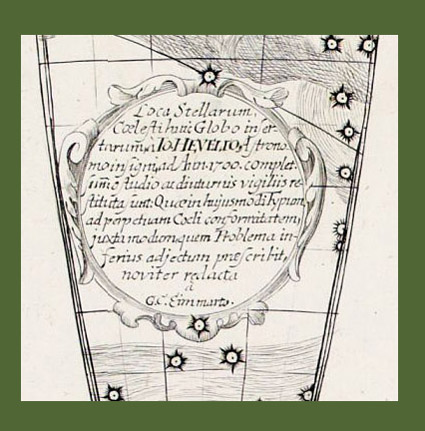 Loca Stellarum,
Cœlesti huic Globo inser-
tarum, a IO. HEVELIO, Astrono-
mo insigni, ad Ann. 1700. complet.
summo studio ac diuturnis vigiliis re-
stituta sunt: Quæ in hujusmodi Typum,
ad perpetuam Cœli conformitatem,
juxta modum, quem Problema in-
ferius adjectum præscribit,
noviter redacta
à
G.C. Eimmarto.